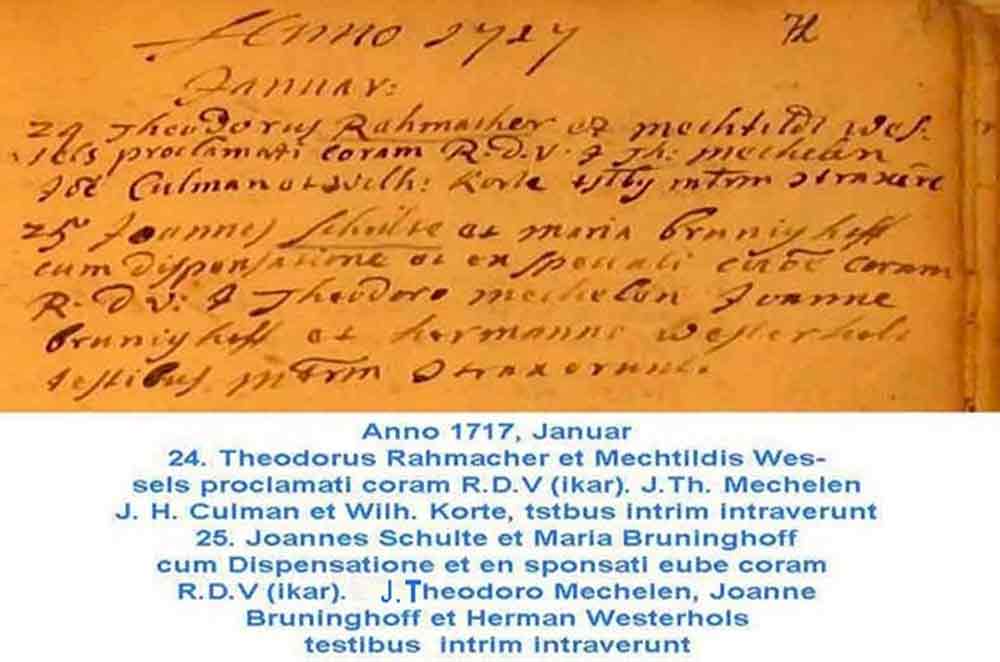 Anno 1717
72
Januar:
24 Theodorus Rahmacher et mechtildi Wes-
sels proclamati coram R.D.V. J Th: mechelen
Culman et wilh: Korte mtrm 
25 Joannes Schulte et maria bruninghoff
cum dispensatione et ex speciali coram
R.D.V: J Theodoro mechelen Joanne
bruninghoff et hermanno westerhols
testibus mtrm Straxerunt.
Anno 1717, Januar
24. Theodorus Rahmacher et Mechtildis Wes-
sels proclamati coram R.D.V (ikar). J.Th. Mechelen
J. H. Culman et Wilh. Korte, tstbus intrim intraverunt
25. Joannes Schulte et Maria Bruninghoff
cum Dispensatione et en sponsati eube coram
R.D.V (ikar). J.Theodoro Mechelen, Joanne
Bruninghoff et Herman Westerhols
testibus intrim intraverunt